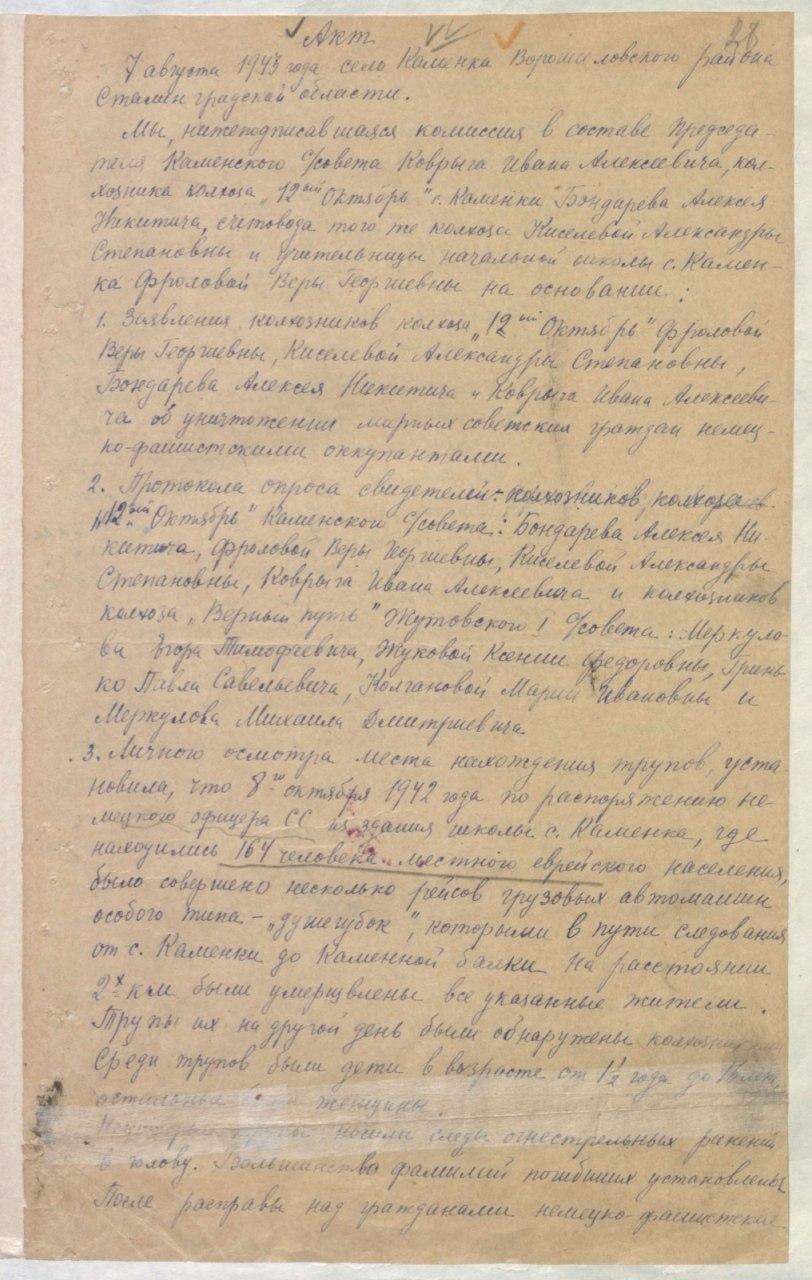 Акт
7 августа 1943 года село Каменка Ворошиловского района
Сталинградской области.
Мы, нижеподписавшаяся комиссия в составе Председа-
теля Каменского с/совета Коврыга Ивана Алексеевича, кол-
хозника колхоза „12ый Октябрь" с. Каменки Бондарева Алексея
Никитича, счетовода того же колхоза Киселевой Александры
Степановны и учительницы начальной школы с. Камен-
ка Фроловой Веры Георгиевны на основании:
1. Заявления колхозников колхоза „12ый Октябрь" Фроловой
Веры Георгиевны, Киселевой Александры Степановны,
Бондарева Алексея Никитича и Коврыга Ивана Алексееви-
ча об уничтожении мирных советских граждан немец-
ко-фашистскими оккупантами.
2. Протокола опроса свидетелей: колхозников колхоза
„12ый Октябрь" Каменского с/совета: Бондарева Алексея Ни-
китича, Фроловой Веры Георгиевны, Киселевой Александры
Степановны, Коврыга Ивана Алексеевича и колхозников
колхоза „Верный путь" Жутовского I с/совета: Меркуло-
ва Егора Тимофеевича, Жуковой Ксении Федоровны, Гринь-
ко Павла Савельевича, Колгановой Марии Ивановны и
Меркулова Михаила Дмитриевича
3. Личного осмотра места нахождения трупов, уста
новила, что 8го октября 1942 года по распоряжению не-
мецкого офицера СС из здания школы с. Каменка, где
находились 164 человека местного еврейского населения,
было совершено несколько рейсов грузовых автомашин
особого типа – „душегубок", которыми в пути следования
от с. Каменки до Каменной балки на расстоянии
2х км были умерщвлены все указанные жители.
Трупы их на другой день были обнаружены
Среди трупов были дети в возрасте от 1½ года до 16 лет,
остальные женщины.
Некоторые трупы носили следы огнестрельных ранений
в голову. Большинство фамилий погибших установлены
После расправы над гражданами немецко-фашистские